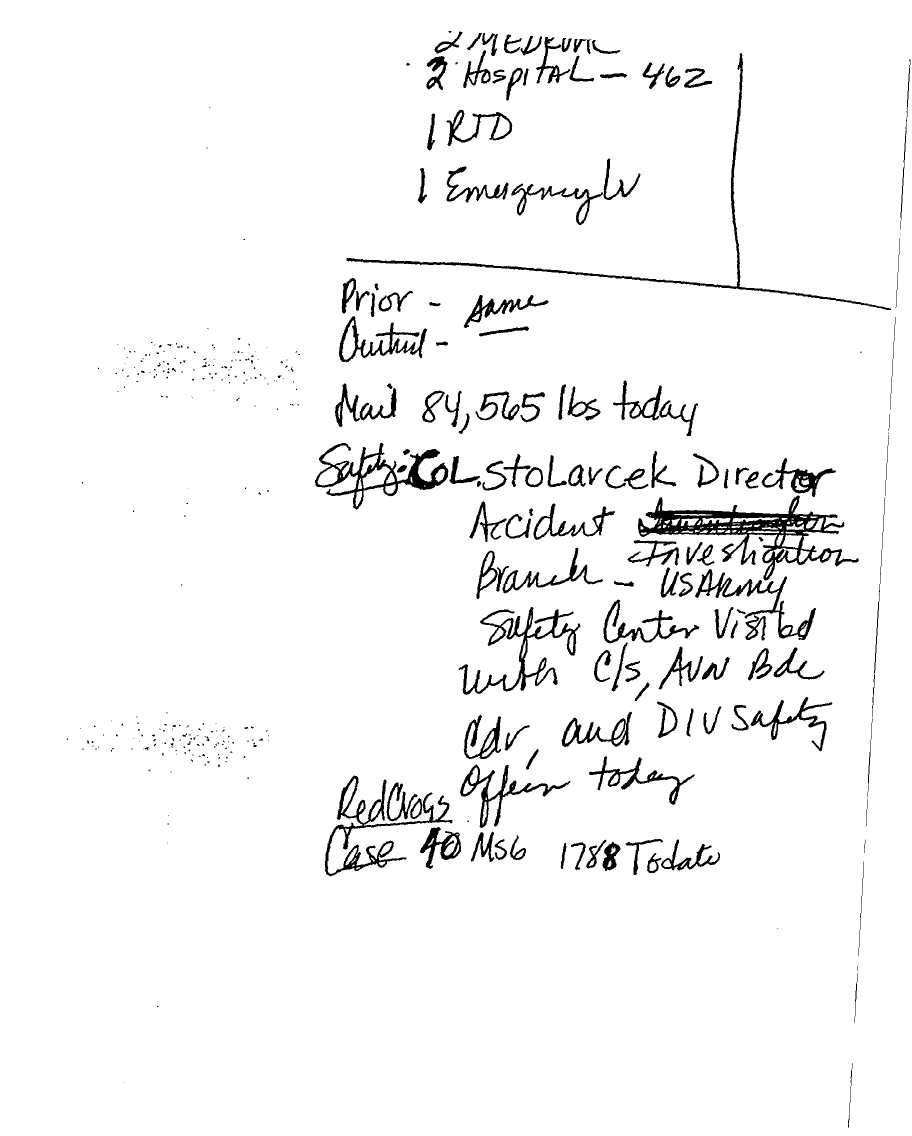 2 MEDEVAC
2 Hospital – 462
1 RTD
1 Emergency lv
Prior - same
Mail 84,565 lbs today
Safety: COL. Stolarcek Director
Accident
Investigation
Branch – US Army
Safety Center Visited
with C/S, AVN Bde
Cdr, and DIV Safety
Officer today
Red Cross
Case 40 MSG 1788 Todate